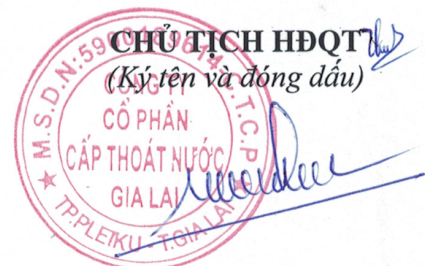 CHỦ TỊCH HĐQT
(Ký tên và đóng dấu)
CÔNG TY
CỔ PHẦN
CẤP THOÁT NƯỚC
GIA LAI
TP.PLEIKU - T.GIA LAI